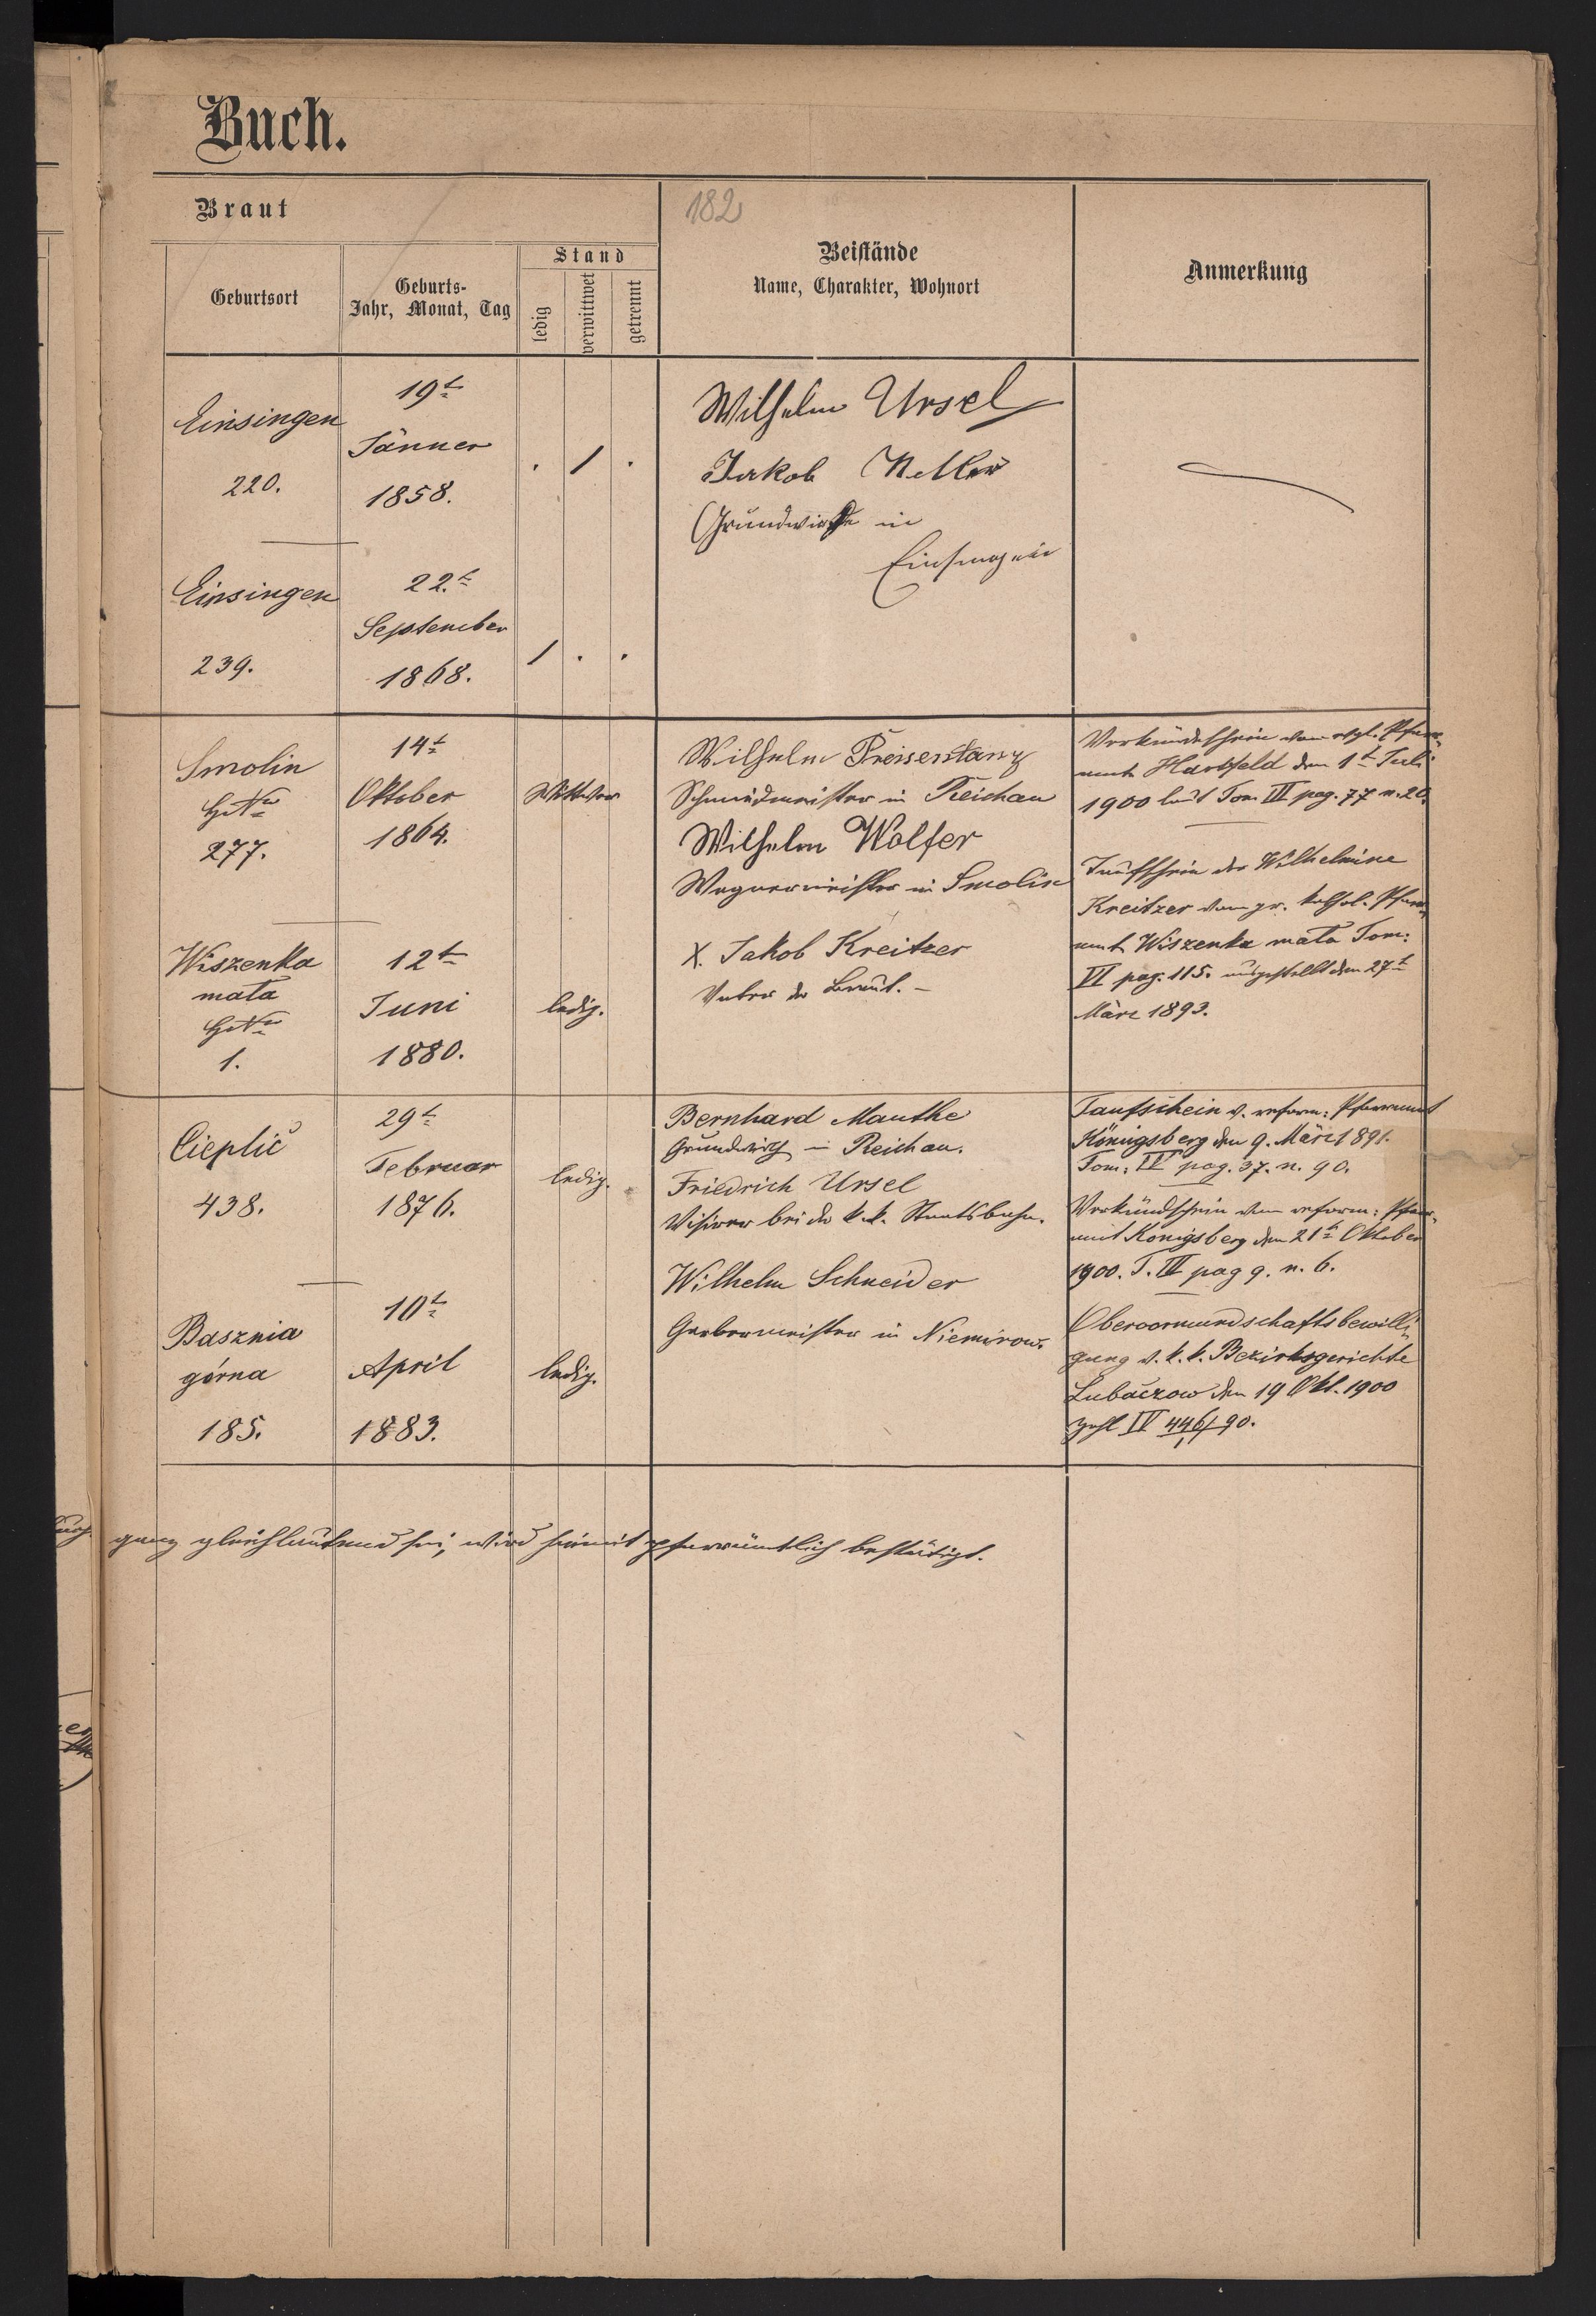 Buch.
Braut
182
Geburtsort
Geburts-
Jahr, Monat, Tag
Stand
ledig
verwittwet
getrennt
Beistände
Name, Charakter, Wohnort
Anmerkung
Einsingen
220.
19t
Jänner
1858.
. 1 .
Wilhelm Ursel
Jakob
Grundwirthe in
Einsingen
Einsingen
239.
22.t
September
1868.
1 . .
Smolin
HsNr
277.
14t
Oktober
1864.
Wittwer
Wilhelm Preisentanz
Schmiedmeister in Reichau
Wilhelm Wolfer
Wagnermeister in Smolin
X. Jakob Kreitzer
Vater der Braut. –
Verkündschein vom evgl. Pfarr-
amt Hartfeld den 1t Juli
1900 laut Tom III pag. 77 n. 20.
Taufschein der Wilhelmine
Kreitzer vom gr. kathol. Pfarr-
amt Wiszenka mała Tom:
VI pag. 115. ausgestellt den 27t
März 1893.
Wiszenka
mała
HsNr
1.
12t
Juni
1880.
ledig.
Cieplic
438.
29t
Februar
1876.
ledig.
Bernhard Manthe
Grundwirth in Reichau.
Friedrich Ursel
bei der k.k. Staatsbahn.
Wilhelm Schneider
Gerbermeister in Niemirow.
Taufschein v. reform: Pfarramt
Königsberg den 9. März 1891.
Tom: II pag. 37. n. 90.
Verkündschein vom reform: Pfarr-
amt Königsberg den 21t Oktober
1900. T. III pag 9. n. 6.
Obervormundschaftsbewilli-
gung v. k. k. Bezirksgerichte
Lubaczow den 19 Okt. 1900
Zahl IV 446/90.
Basznia
górna
185.
10t
April
1883.
ledig.
ganz gleichlautend sei, wird hiemit pfarrämtlich bestätigt.